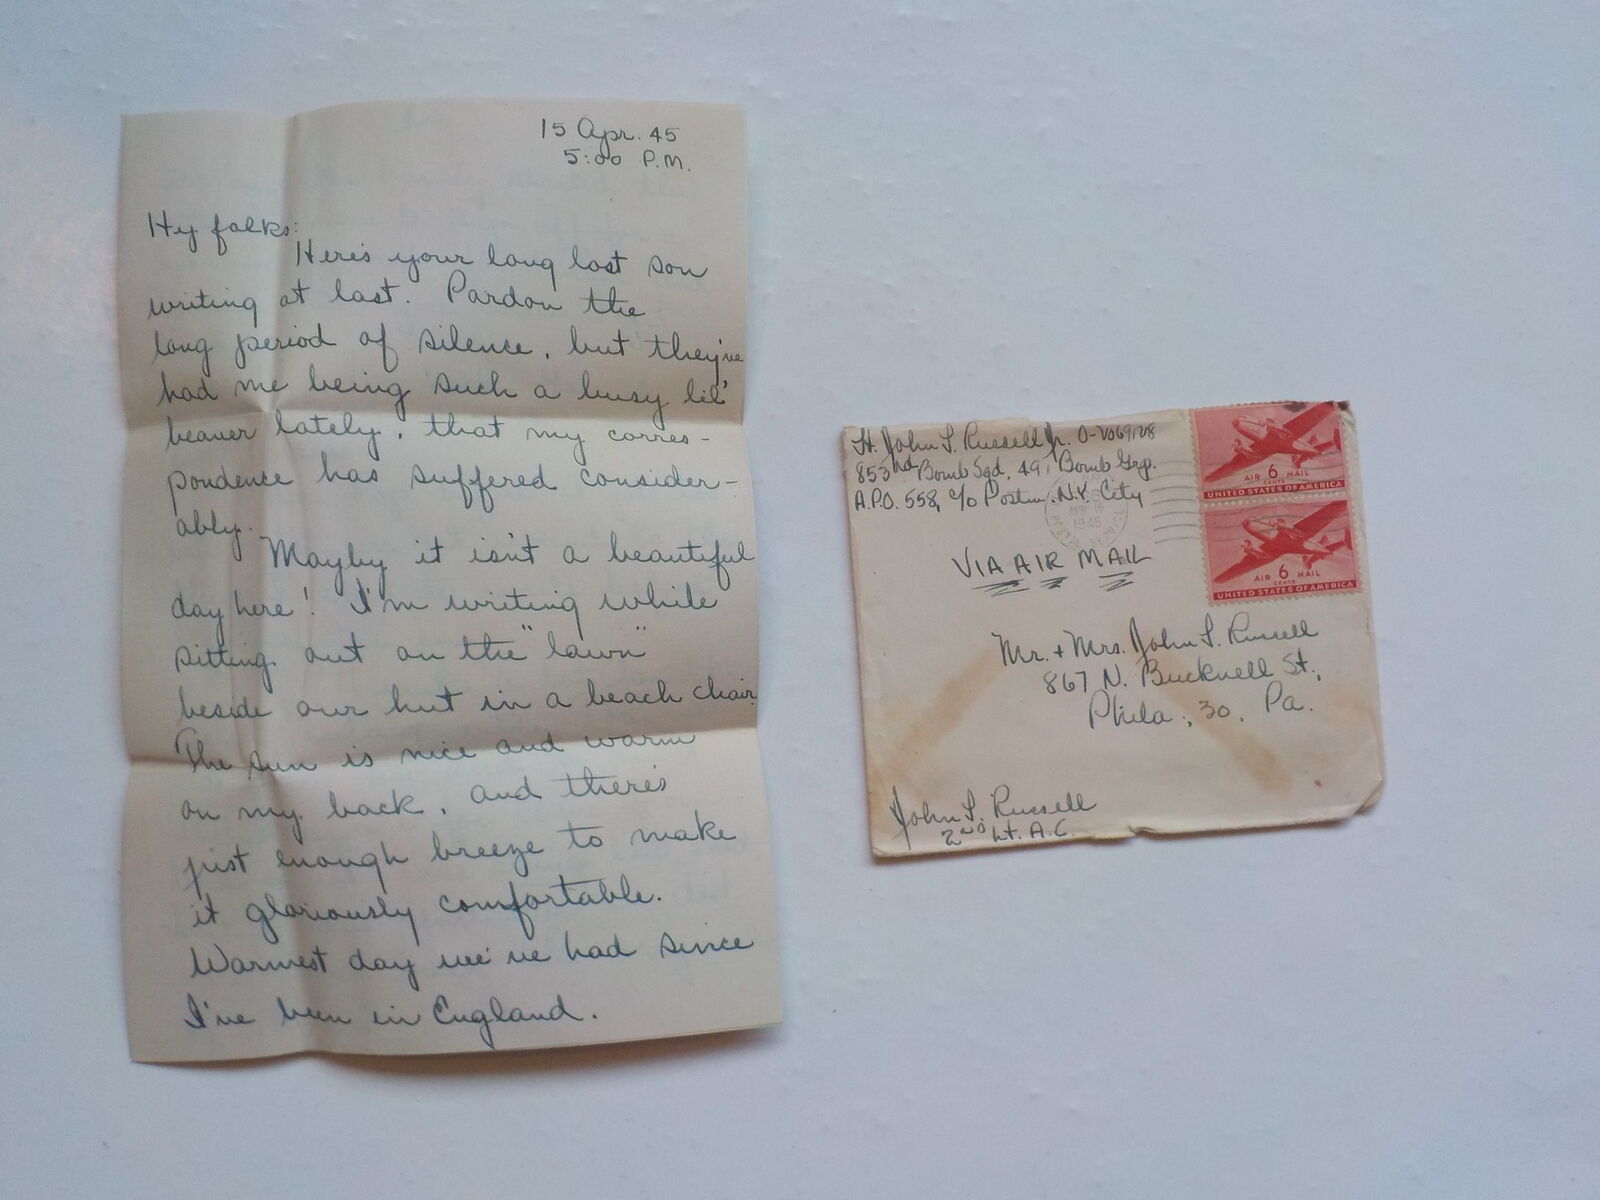 15 Apr. 45
5:00 P.M.
Hy folks:
Here's your long lost son
writing at last. Pardon the
long period of silence, but they've
had me being such a busy lil'
beaver lately, that my corres-
pondence has suffered consider-
ably.
Mayby it isn't a beautiful
day here! I'm writing while
sitting out on the "lawn"
beside our hut in a beach chair.
The sun is nice and warm
on my back, and there's
just enough breeze to make
it gloriously comfortable.
Warmest day we've had since
I've been in England.
Lt. John L. Russell Jr. O-2069128
853nd Bomb Sqd. 491 Bomb Grp.
A.P.O. 558, c/o Postm. N.Y. City
APR 16
1945
VIA AIR MAIL
AIR 6 MAIL
CENTS
UNITED STATES OF AMERICA
AIR 6 MAIL
CENTS
UNITED STATES OF AMERICA
Mr. + Mrs. John L. Russell
867 N. Bucknell St.,
Phila., 30, Pa.
John L. Russell
2nd Lt. A.C.